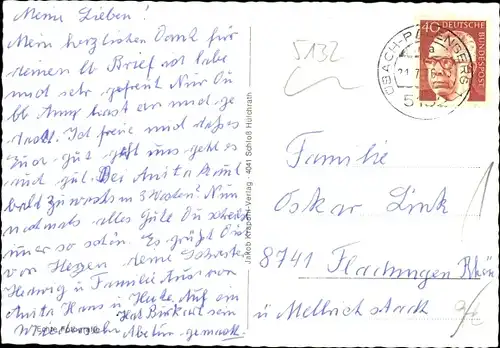 Meine Lieben!
Mein herzlichen Dank für
deinen lb Brief ich habe
mich sehr gefreut Nur Du
lb Anny hast an mich ge
dacht. Ich freue mich daß es
Euch gut geht uns geht es
auch gut. Bei Anita kommt
bald Zuwachs in 3 Wochen? Nun
nochmals alles Gute Du schreibst
immer so schön. Es grüßt Dich
von Herzen deine Schwester
Hedwig u Familie Auch von
Anita Hans u Heike. Auf ein
Wiedersehn Hat Birkart sein
Abitur gemacht
5132
Jakob Krapohl-Verlag · 4041 Schloß Hülchrath
40 DEUTSCHE
BUNDESPOST
ÜBACH-PALENBERG
5132
Familie
Oskar Link
8741 Fladungen Rhön
u Mellrichstadt